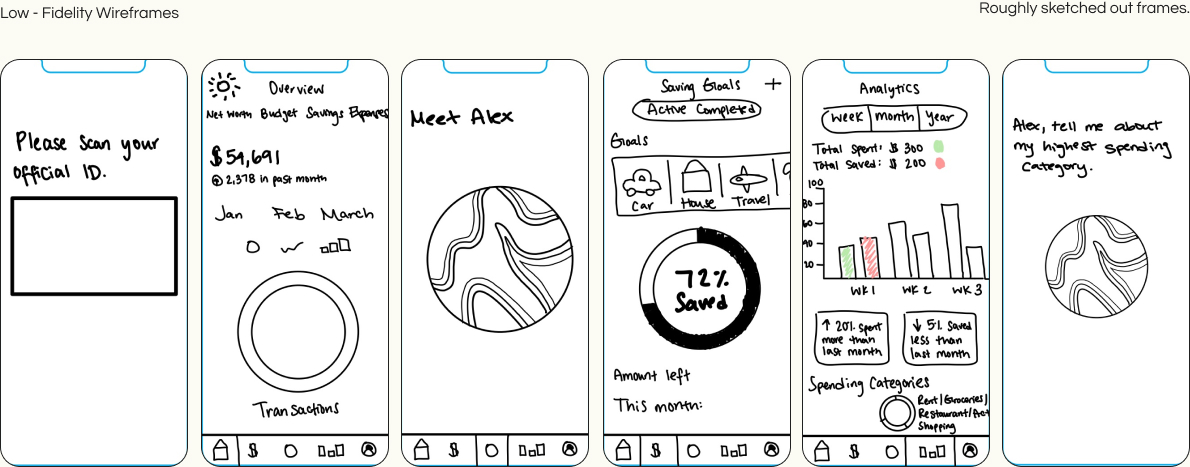 Low - Fidelity Wireframes
Roughly sketched out frames.
Please scan your
official ID.
Overview
Net Worth Budget Savings Expenses
$54,691
2,378 in past month
Jan Feb March
Transactions
$
Meet Alex
$
Saving Goals +
Active Completed
Goals
Car House Travel
72%
Saved
Amount left
This month:
$
Analytics
Week month year
Total Spent: $ 300
Total Saved: $ 200
100
80
60
40
20
WK 1 WK 2 WK 3
↑ 20% spent
more than
last month
↓ 5% Saved
less than
last month
Spending Categories
Rent/Groceries/
Restaurant/Act
Shopping
$
Alex, tell me about
my highest spending
category.